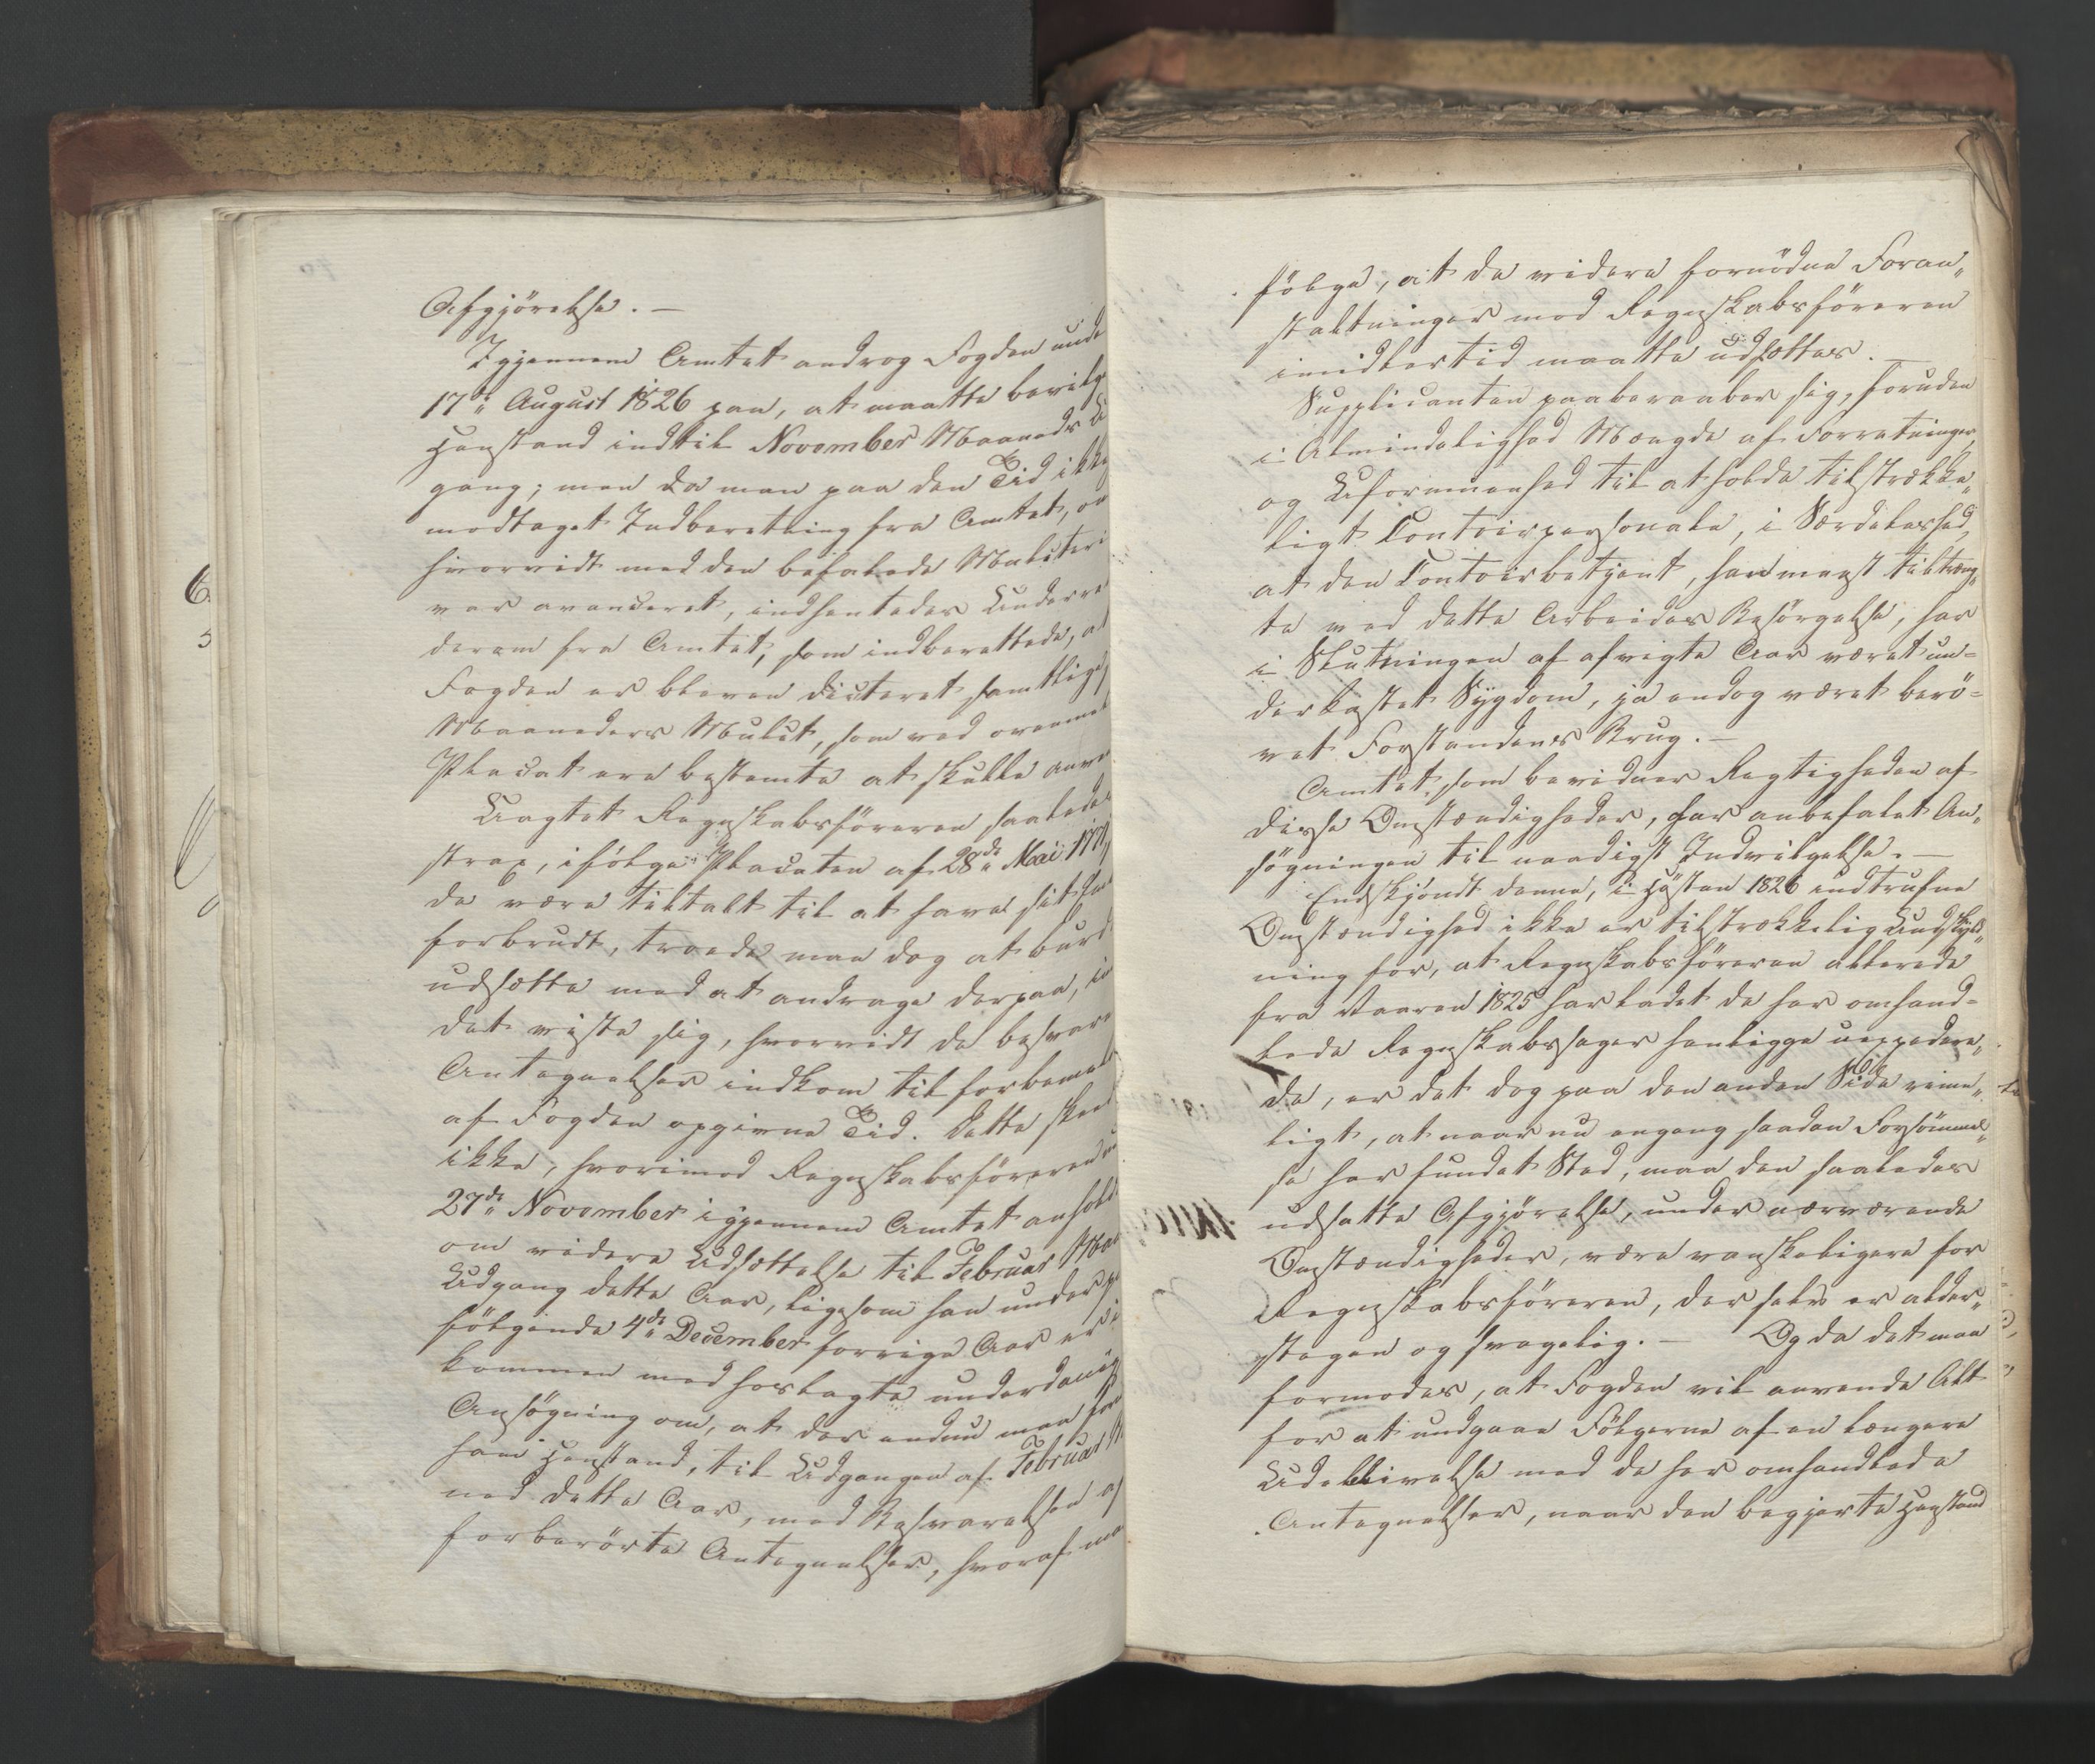 Afgjörelse. —
Igjennem Amtet androg Fogden unde
17de August 1826 paa, at maatte bevilge
Henstand indtil November Maaneds U
gang; men da man paa den Tid ikke
modtaget Indberetning fra Amtet, om
hvorvidt med den befalede Mulcteri
var avanceret, indhentedes Underre
derom fra Amtet, som indberettede, at
Fogden er bleven dicteret samtlige
Maaneders Mulct, som ved ovenmel
Placat ere bestemte at skulle anve
Uagtet Regnskabsföreren saalede
strax, ifölge Placaten af 28de Mai
de være tiltalt til at have sit
forbrudt, troede man dog at burd
udsætte med at andrage derpaa, in
det viste sig, hvorvidt de besvare
Antegnelser indkom til forbemel
af Fogden opgivne Tid. Dette skee
ikke, hvorimod Regnskabsföreren un
27de November igjennem Amtet anhold
om videre Udsættelse til Februar Maa
Udgang dette Aar, ligesom han under
fölgende 4de December forrige Aar er i
kommen med hoslagte underdanig
Ansögning om, at der endnu maa for
ham Henstand, til Udgangen af Februar M
ned dette Aar, med Besvarelsen af
forberörte Antegnelser, hvoraf
fölge, at de videre fornödne Foran„
staltninger med Regnskabsföreren
imidlertid maatte udsættes. —
Supplicanten paaberaaber sig, foruden
i Almindelighed Mængde af Forretninger,
og Uformuenhed til at holde tilstrække„
ligt Contoirpersonale, i Særdeleshed,
at den Contoirbetjent, han meest tiltræng„
te ved dette Arbeides Besörgelse, har
i Slutningen af afvigte Aar været un=
derkastet Sygdom, ja endog været berö=
vet Forstandens Brug. —
Amtet, som bevidner Rigtigheden af
disse Omstændigheder, har anbefalet An„
sögningen til naadigst Indvilgelse. —
Endskjöndt denne, i Hösten 1826 indtrufne
Omstændighed ikke er tilstrækkelig Undskyld„
ning for, at Regnskabsföreren allerede
fra Vaaren 1825 har ladet de her omhand=
lede Regnskabssager henligge uexpedere„
de, er det dog paa den anden Side rime„
ligt, at naar nu engang saadan Forsömmel„
se har fundet Sted, maa den saaledes
udsatte Afgjörelse, under nærværende
Omstændigheder, være vanskeligere for
Regnskabsföreren, der selv er alder„
stegen og svagelig. — Og da det maa
formodes, at Fogden vil anvende Alt
for at undgaae Fölgerne af en længere
Udeblivelse med de her omhandlede
Antegnelser, naar den begjerte Henstand